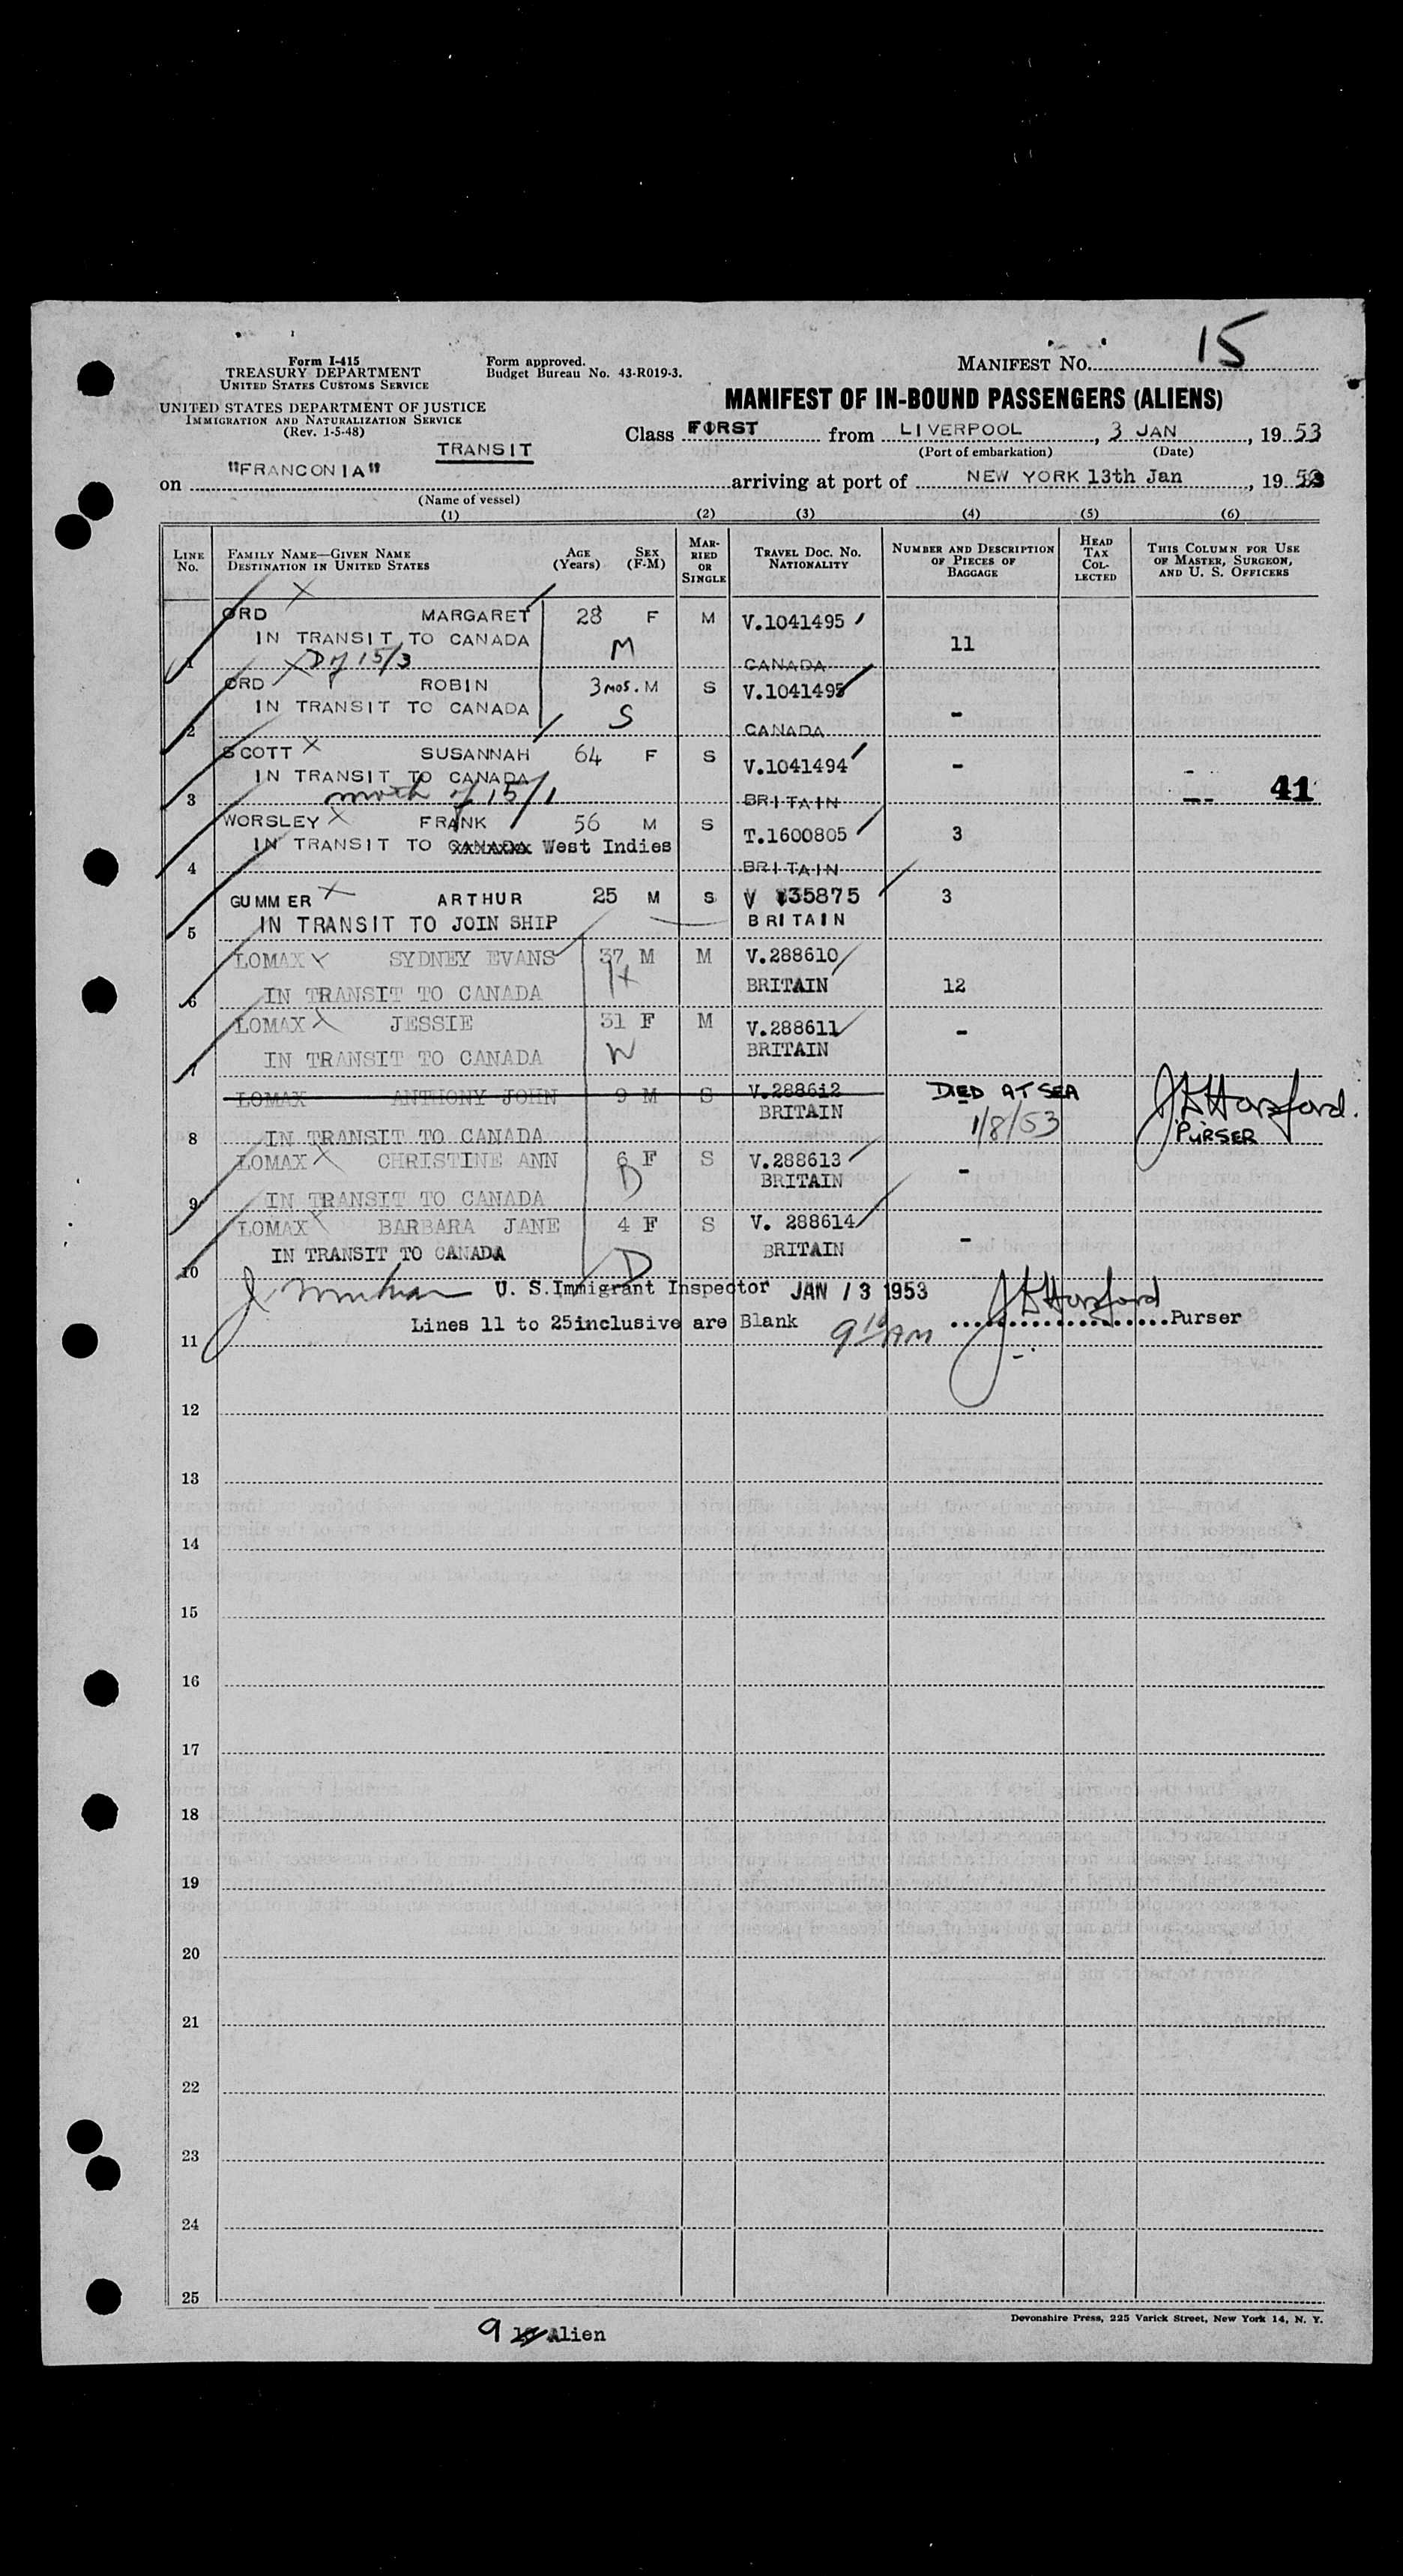 15
Form I-415
TREASURY DEPARTMENT
UNITED STATES CUSTOMS SERVICE
Form approved.
Budget Bureau No. 43-R019-3.
MANIFEST NO.
UNITED STATES DEPARTMENT OF JUSTICE
IMMIGRATION AND NATURALIZATION SERVICE
(Rev. 1-5-48)
MANIFEST OF IN-BOUND PASSENGERS (ALIENS)
TRANSIT
Class FIRST from LIVERPOOL, 3 JAN, 19 53
(Port of embarkation) (Date)
on "FRANCONIA" arriving at port of NEW YORK 13th Jan, 19 53
(Name of vessel)
(1) (2) (3) (4) (5) (6)
LINE NO.
FAMILY NAME—GIVEN NAME
DESTINATION IN UNITED STATES
AGE (Years)
SEX (F-M)
MARRIED OR SINGLE
TRAVEL DOC. NO.
NATIONALITY
NUMBER AND DESCRIPTION OF PIECES OF BAGGAGE
HEAD TAX COLLECTED
THIS COLUMN FOR USE OF MASTER, SURGEON, AND U. S. OFFICERS
ORD MARGARET 28 F M V.1041495
IN TRANSIT TO CANADA M 11
1 CANADA
ORD ROBIN 3 MOS. M S V.1041495
IN TRANSIT TO CANADA S -
2 CANADA
SCOTT SUSANNAH 64 F S V.1041494
IN TRANSIT TO CANADA -
3 BRITAIN 41
WORSLEY FRANK 56 M S T.1600805 3
IN TRANSIT TO CANADA West Indies
4 BRITAIN
GUMMER ARTHUR 25 M S V 35875 3
5 IN TRANSIT TO JOIN SHIP BRITAIN
LOMAX SYDNEY EVANS 37 M M V.288610
6 IN TRANSIT TO CANADA H BRITAIN 12
LOMAX JESSIE 31 F M V.288611 -
7 IN TRANSIT TO CANADA W BRITAIN
LOMAX ANTHONY JOHN 9 M S V.288612 DIED AT SEA
BRITAIN 1/8/53
8 IN TRANSIT TO CANADA PURSER
LOMAX CHRISTINE ANN 6 F S V.288613 -
9 IN TRANSIT TO CANADA D BRITAIN
LOMAX BARBARA JANE 4 F S V. 288614 -
10 IN TRANSIT TO CANADA D BRITAIN
U. S. Immigrant Inspector JAN 13 1953
Lines 11 to 25inclusive are Blank 9 10 AM Purser
11
12
13
14
15
16
17
18
19
20
21
22
23
24
25
Devonshire Press, 225 Varick Street, New York 14, N. Y.
9 10 Alien